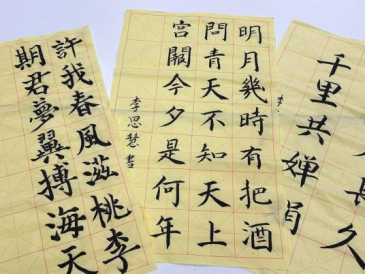 長久
千里共嬋娟
明月幾時有把酒
問青天不知天上
宮闕今夕是何年
李思慧書
許我春風滋桃李
期君夢翼搏海天